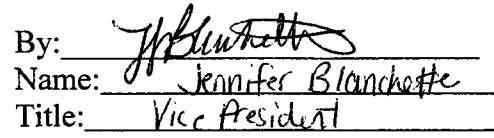 By:
Name: Jennifer Blanchette
Title: Vice President